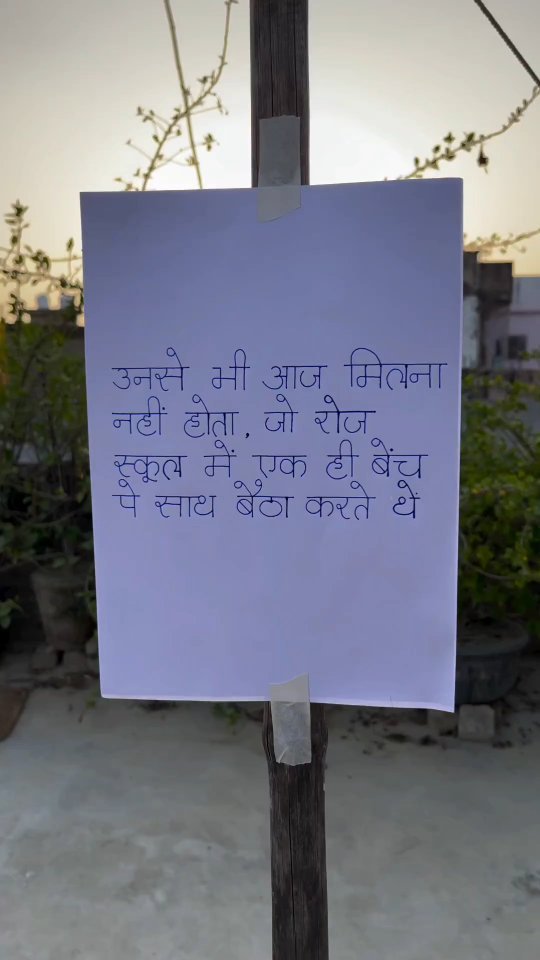 उनसे भी आज मिलना
नहीं होता, जो रोज
स्कूल में एक ही बेंच
पे साथ बैठा करते थें